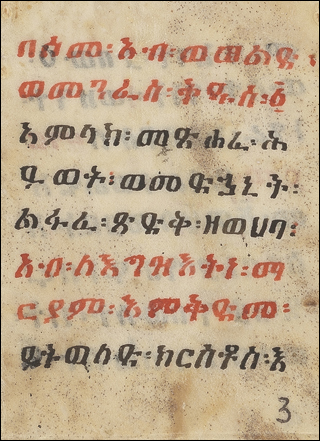 በስመ፡ አብ፡ ወወልድ፡
ወመንፈስ፡ ቅዱስ፡ ፩
አምላክ፡ መጽሐፈ፡ ሕ
ይወት፡ ወመድኃኒት፡
ልፋፈ፡ ጽድቅ፡ ዘወሀባ፡
አብ፡ ለእግዝእትነ፡ ማ
ርያም፡ እምቅድመ፡
ይትወለድ፡ ክርስቶስ፡ እ
3